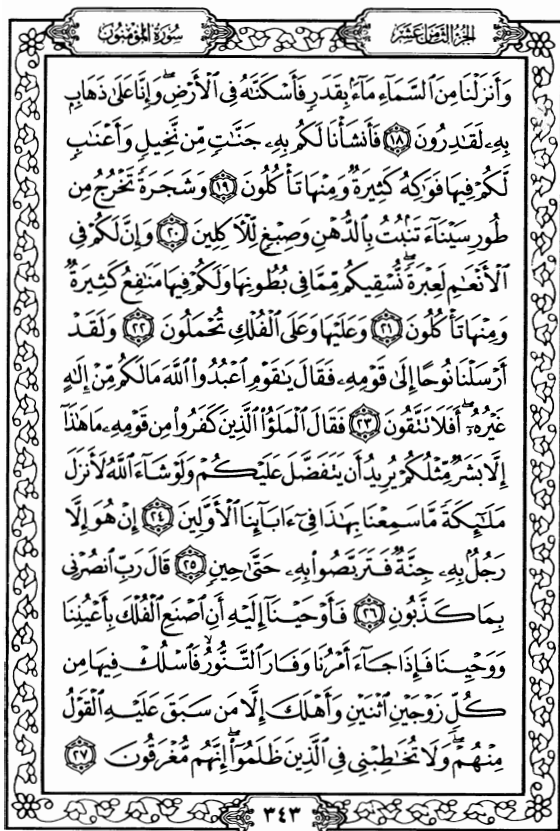 الجزء الثامن عشر
سورة المؤمنون
وَأَنزَلْنَا مِنَ ٱلسَّمَآءِ مَآءًۢ بِقَدَرٍ فَأَسْكَنَّٰهُ فِى ٱلْأَرْضِ ۖ وَإِنَّا عَلَىٰ ذَهَابٍۭ
بِهِۦ لَقَٰدِرُونَ ١٨ فَأَنشَأْنَا لَكُم بِهِۦ جَنَّٰتٍ مِّن نَّخِيلٍ وَأَعْنَٰبٍ
لَّكُمْ فِيهَا فَوَٰكِهُ كَثِيرَةٌ وَمِنْهَا تَأْكُلُونَ ١٩ وَشَجَرَةً تَخْرُجُ مِن
طُورِ سَيْنَآءَ تَنۢبُتُ بِٱلدُّهْنِ وَصِبْغٍ لِّلْءَاكِلِينَ ٢٠ وَإِنَّ لَكُمْ فِى
ٱلْأَنْعَٰمِ لَعِبْرَةً ۖ نُّسْقِيكُم مِّمَّا فِى بُطُونِهَا وَلَكُمْ فِيهَا مَنَٰفِعُ كَثِيرَةٌ
وَمِنْهَا تَأْكُلُونَ ٢١ وَعَلَيْهَا وَعَلَى ٱلْفُلْكِ تُحْمَلُونَ ٢٢ وَلَقَدْ
أَرْسَلْنَا نُوحًا إِلَىٰ قَوْمِهِۦ فَقَالَ يَٰقَوْمِ ٱعْبُدُوا۟ ٱللَّهَ مَا لَكُم مِّنْ إِلَٰهٍ
غَيْرُهُۥٓ ۖ أَفَلَا تَتَّقُونَ ٢٣ فَقَالَ ٱلْمَلَؤُا۟ ٱلَّذِينَ كَفَرُوا۟ مِن قَوْمِهِۦ مَا هَٰذَآ
إِلَّا بَشَرٌ مِّثْلُكُمْ يُرِيدُ أَن يَتَفَضَّلَ عَلَيْكُمْ وَلَوْ شَآءَ ٱللَّهُ لَأَنزَلَ
مَلَٰٓئِكَةً مَّا سَمِعْنَا بِهَٰذَا فِىٓ ءَابَآئِنَا ٱلْأَوَّلِينَ ٢٤ إِنْ هُوَ إِلَّا
رَجُلٌۢ بِهِۦ جِنَّةٌ فَتَرَبَّصُوا۟ بِهِۦ حَتَّىٰ حِينٍ ٢٥ قَالَ رَبِّ ٱنصُرْنِى
بِمَا كَذَّبُونِ ٢٦ فَأَوْحَيْنَآ إِلَيْهِ أَنِ ٱصْنَعِ ٱلْفُلْكَ بِأَعْيُنِنَا
وَوَحْيِنَا فَإِذَا جَآءَ أَمْرُنَا وَفَارَ ٱلتَّنُّورُ ۙ فَٱسْلُكْ فِيهَا مِن
كُلٍّ زَوْجَيْنِ ٱثْنَيْنِ وَأَهْلَكَ إِلَّا مَن سَبَقَ عَلَيْهِ ٱلْقَوْلُ
مِنْهُمْ ۖ وَلَا تُخَٰطِبْنِى فِى ٱلَّذِينَ ظَلَمُوٓا۟ ۖ إِنَّهُم مُّغْرَقُونَ ٢٧
٣٤٣